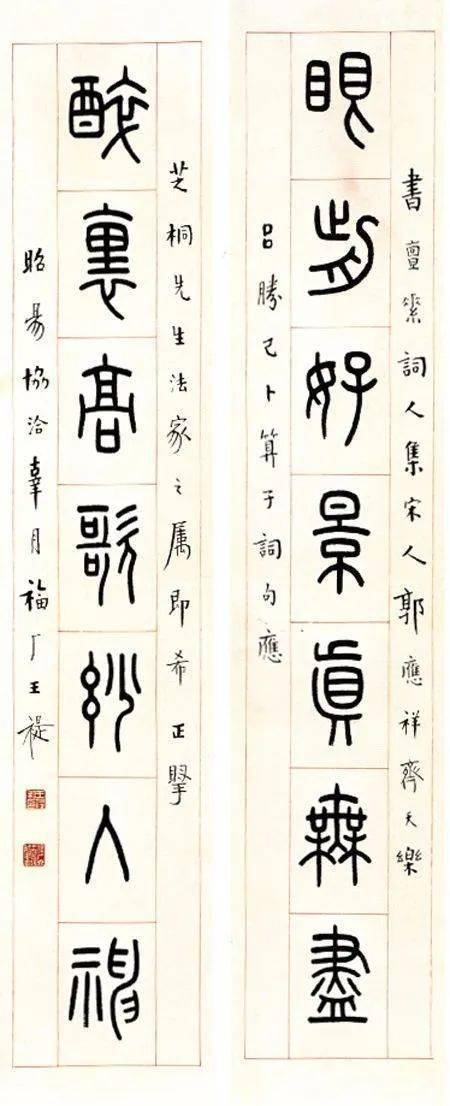 書亶素詞人集宋人郭應祥齊天樂
眼歬好景眞無盡
呂勝己卜算子詞句應
芝桐先生法家之属即希正掔
醉裏高歌玅入神
昭昜協洽辜月福厂王禔